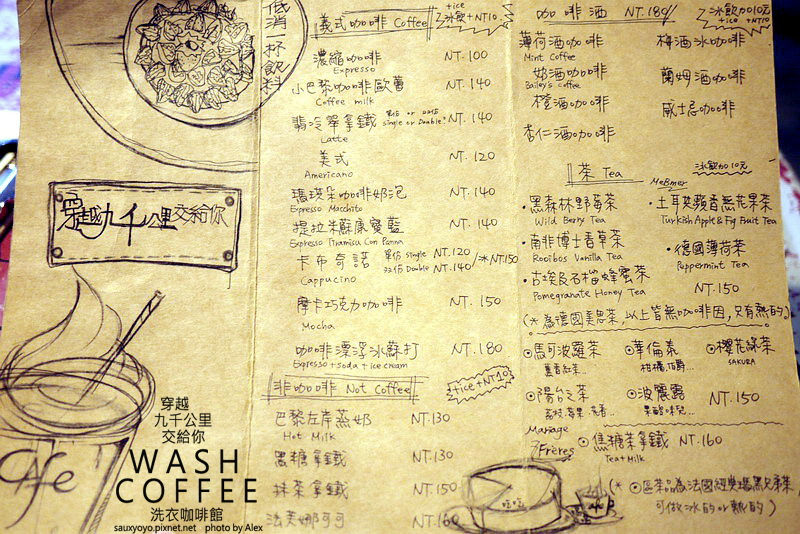 低消一杯飲料
穿越九千公里交給你
Cafe
穿越
九千公里
交給你
WASH
COFFEE
洗衣咖啡館
sauxyoyo.pixnet.net photo by Alex
義式咖啡 Coffee
+ice
冰飲+NT10
濃縮咖啡 NT.100
Espresso
小巴黎咖啡歐蕾 NT.140
Coffee milk
翡冷翠拿鐵 單份 or 雙份 single or Double? NT.140
Latte
美式 NT.120
Americano
瑪琪朵咖啡奶泡 NT.140
Espresso Macchito
提拉米蘇康寶藍 NT.140
Espresso Tiramisu Con Panna
卡布奇諾 單份 single NT.120
雙份 Double NT.140 / 冰 NT.150
Cappucino
摩卡巧克力咖啡 NT.150
Mocha
咖啡漂浮冰蘇打 NT.180
Espresso+soda+ice cream
非咖啡 Not Coffee
+ice+NT10
巴黎左岸蒸奶 NT.130
Hot Milk
黑糖拿鐵 NT.130
抹茶拿鐵 NT.150
法芙娜可可 NT.160
咖啡酒 NT.180
冰飲加10元
+ice+NT10
薄荷酒咖啡 梅酒冰咖啡
Mint Coffee
奶酒咖啡 蘭姆酒咖啡
Bailey's coffee
橙酒咖啡 威士忌咖啡
杏仁酒咖啡
茶 Tea
冰飲加10元
MeBmer
黑森林野莓茶
Wild Berry Tea
土耳其蘋香無花果茶
Turkish Apple & Fig Fruit Tea
南非博士香草茶
Rooibos Vanilla Tea
德國薄荷茶
Peppermint Tea
古埃及石榴蜂蜜茶 NT.150
Pomegranate Honey Tea
(*為德國美思茶,以上皆無咖啡因,只有熱的)
馬可波羅茶 華倫泰 櫻花綠茶
SAKURA
陽台之茶 波麗露 NT.150
Mariage
Frères
焦糖茶拿鐵 NT.160
Tea+Milk
(*區茶品為法國經典瑪黑兄弟茶
可做冰的or熱的)
吃吃